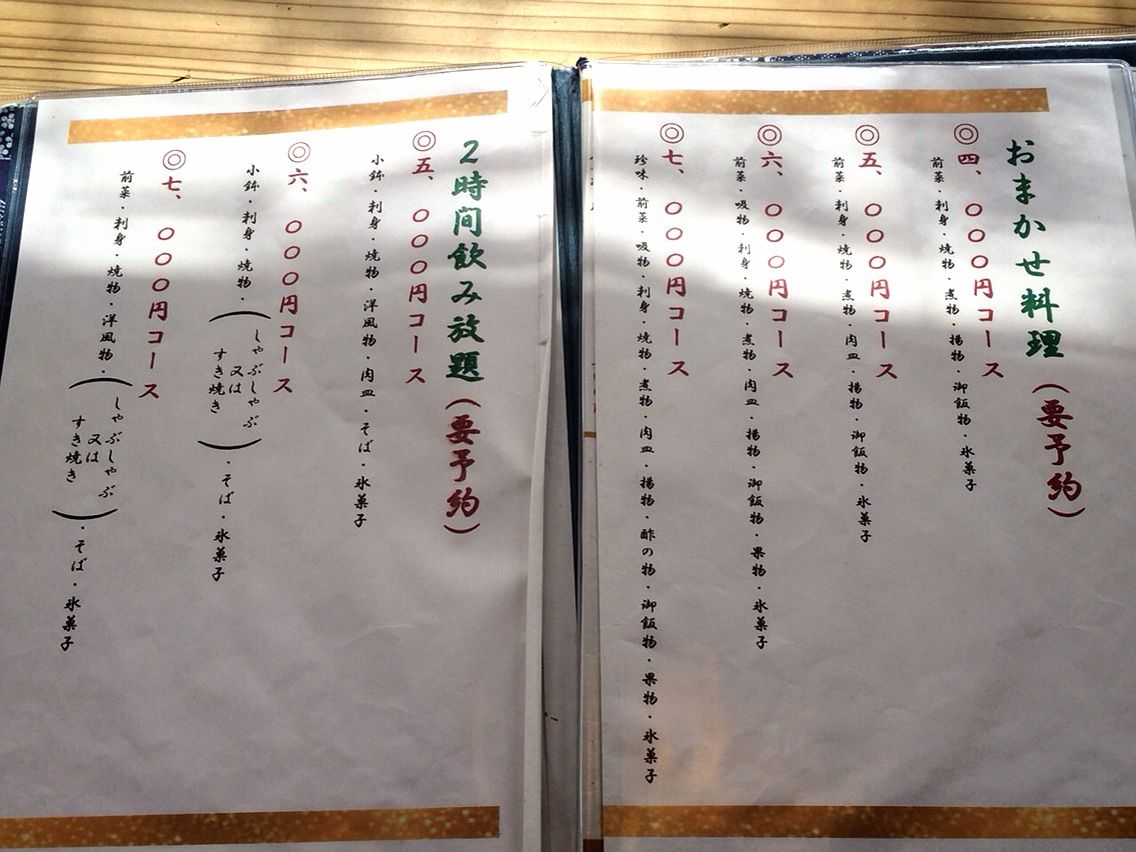 おまかせ料理（要予約）
◎四、〇〇〇円コース
前菜・刺身・焼物・煮物・揚物・御飯物・氷菓子
◎五、〇〇〇円コース
前菜・刺身・焼物・煮物・肉皿・揚物・御飯物・氷菓子
◎六、〇〇〇円コース
前菜・吸物・刺身・焼物・煮物・肉皿・揚物・御飯物・果物・氷菓子
◎七、〇〇〇円コース
珍味・前菜・吸物・刺身・焼物・煮物・肉皿・揚物・酢の物・御飯物・果物・氷菓子
2時間飲み放題（要予約）
◎五、〇〇〇円コース
小鉢・刺身・焼物・洋風物・肉皿・そば・氷菓子
◎六、〇〇〇円コース
小鉢・刺身・焼物・（しゃぶしゃぶ又はすき焼き）・そば・氷菓子
◎七、〇〇〇円コース
前菜・刺身・焼物・洋風物・（しゃぶしゃぶ又はすき焼き）・そば・氷菓子